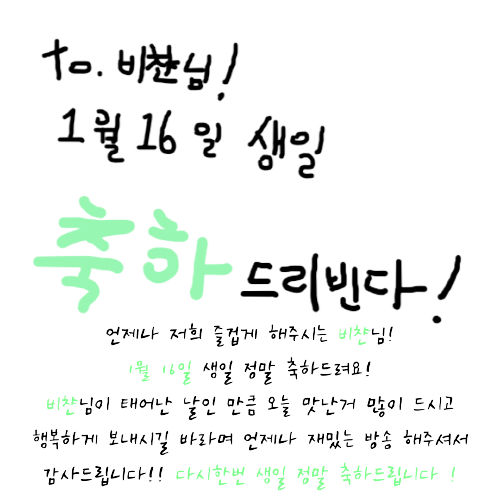 to. 비챤님!
1월 16일 생일
축하드리빈다!
언제나 저희 즐겁게 해주시는 비챤님!
1월 16일 생일 정말 축하드려요!
비챤님이 태어난 날인 만큼 오늘 맛난거 많이 드시고
행복하게 보내시길 바라며 언제나 재밌는 방송 해주셔서
감사드립니다!! 다시한번 생일 정말 축하드립니다 !